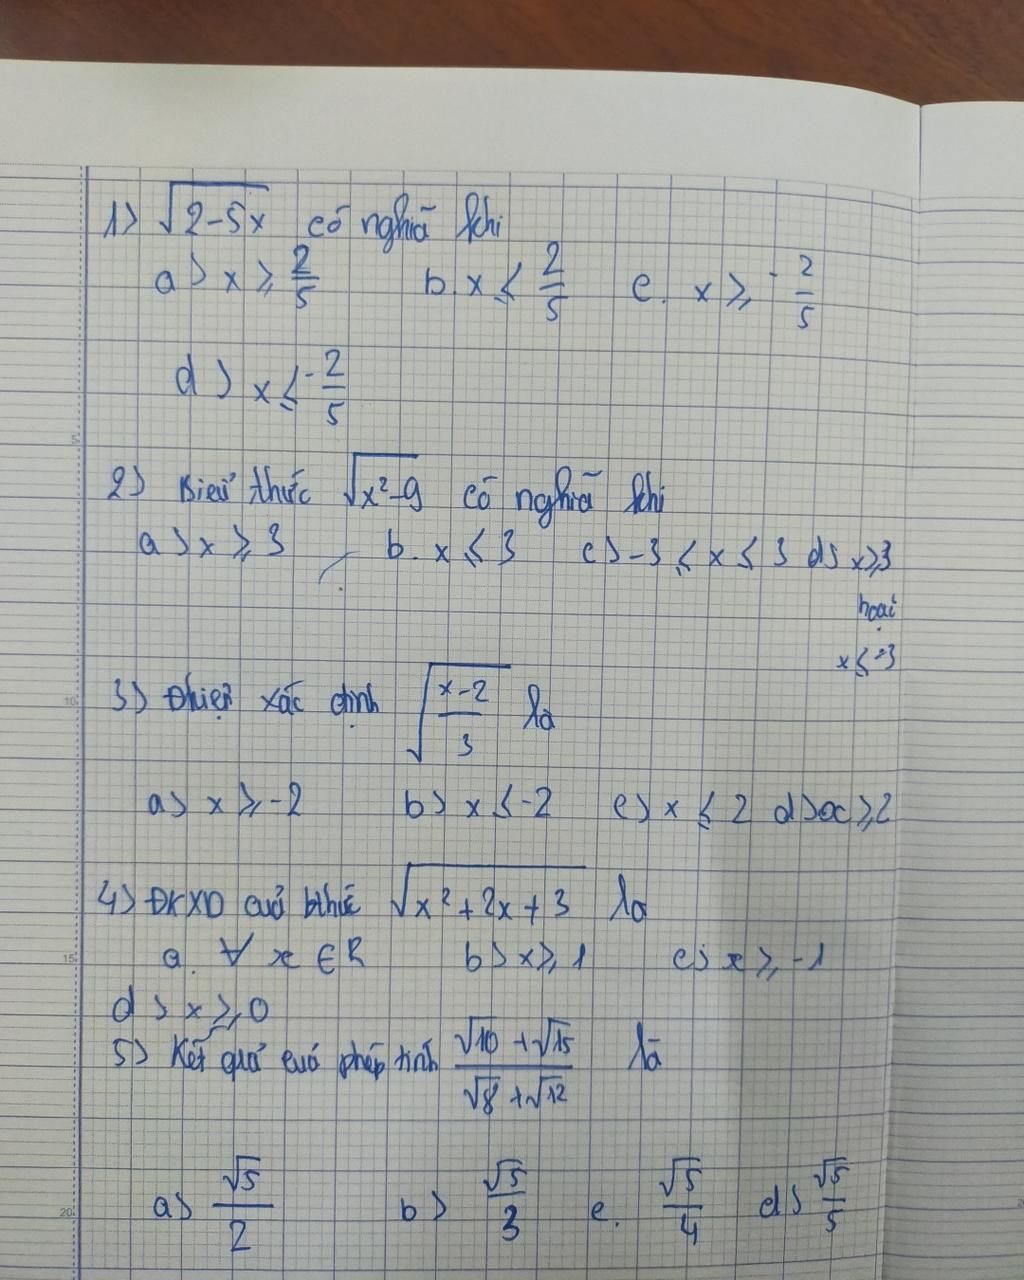 1) √2-5x có nghĩa khi
a) x ≥ 2/5 b. x ≤ 2/5 c. x ≥ -2/5
d) x ≤ -2/5
2) Biểu thức √x²-9 có nghĩa khi
a) x ≥ 3 b. x ≤ 3 c) -3 ≤ x ≤ 3 d) x ≥ 3
hoặc
x ≤ -3
3) Đkiện xác định √(x-2)/3 là
a) x ≥ -2 b) x ≤ -2 c) x ≤ 2 d) x ≥ 2
4) ĐKXD của bthức √x²+2x+3 là
a. ∀ x ∈ R b) x ≥ 1 c) x ≥ -1
d) x ≥ 0
5) Kết quả của phép tính (√10 + √15)/(√8 + √12) là
a) √5/2 b) √5/3 c. √5/4 d) √5/5
5
10
15
20